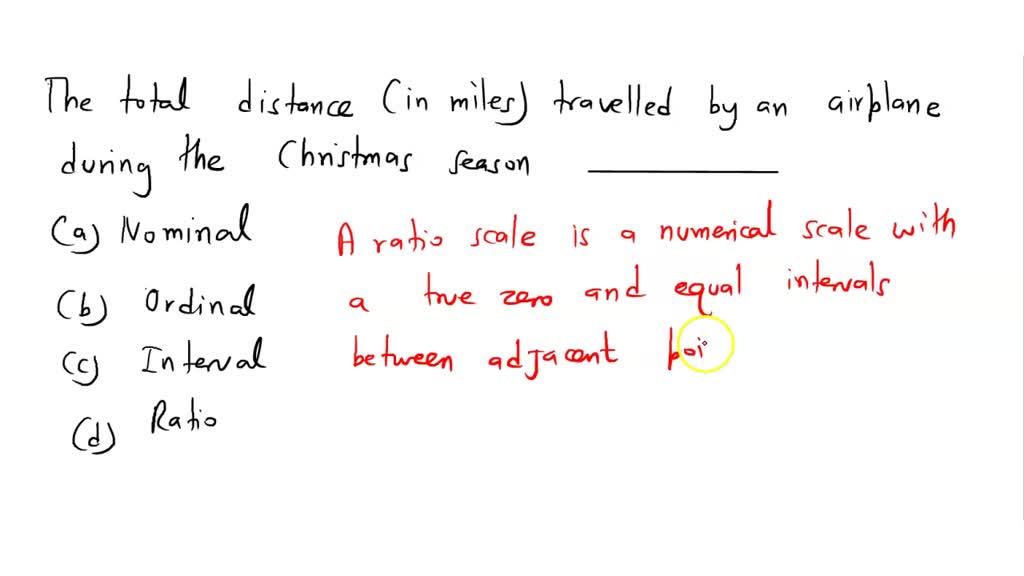 The total distance (in miles) travelled by an airplane
during the Christmas season
(a) Nominal
A ratio scale is a numerical scale with
a true zero and equal intervals
(b) Ordinal
between adjacent poi
(c) Interval
(d) Ratio